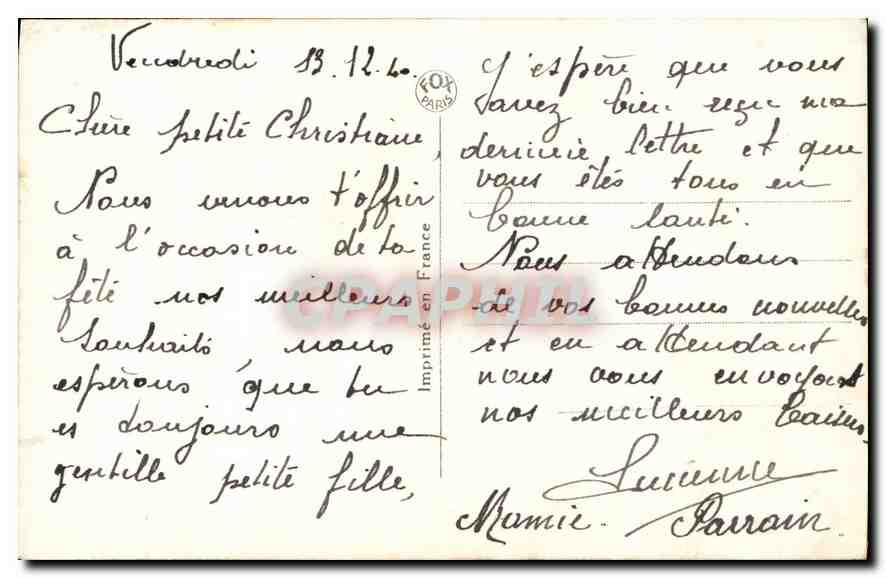 Vendredi 13.12.40.
Chère petite Christiane,
Nous venons t'offrir
à l'occasion de ta
fête nos meilleurs
souhaits, nous
espérons que tu
es toujours une
gentille petite fille,
FOX
PARIS
Imprimé en France
J'espère que vous
avez bien reçu ma
dernière lettre et que
vous êtes tous en
bonne santé.
Nous attendons
de vos bonnes nouvelles
et en attendant
nous vous envoyons
nos meilleurs baisers.
Lucienne
Mamie. Parrain
CPAPHIL